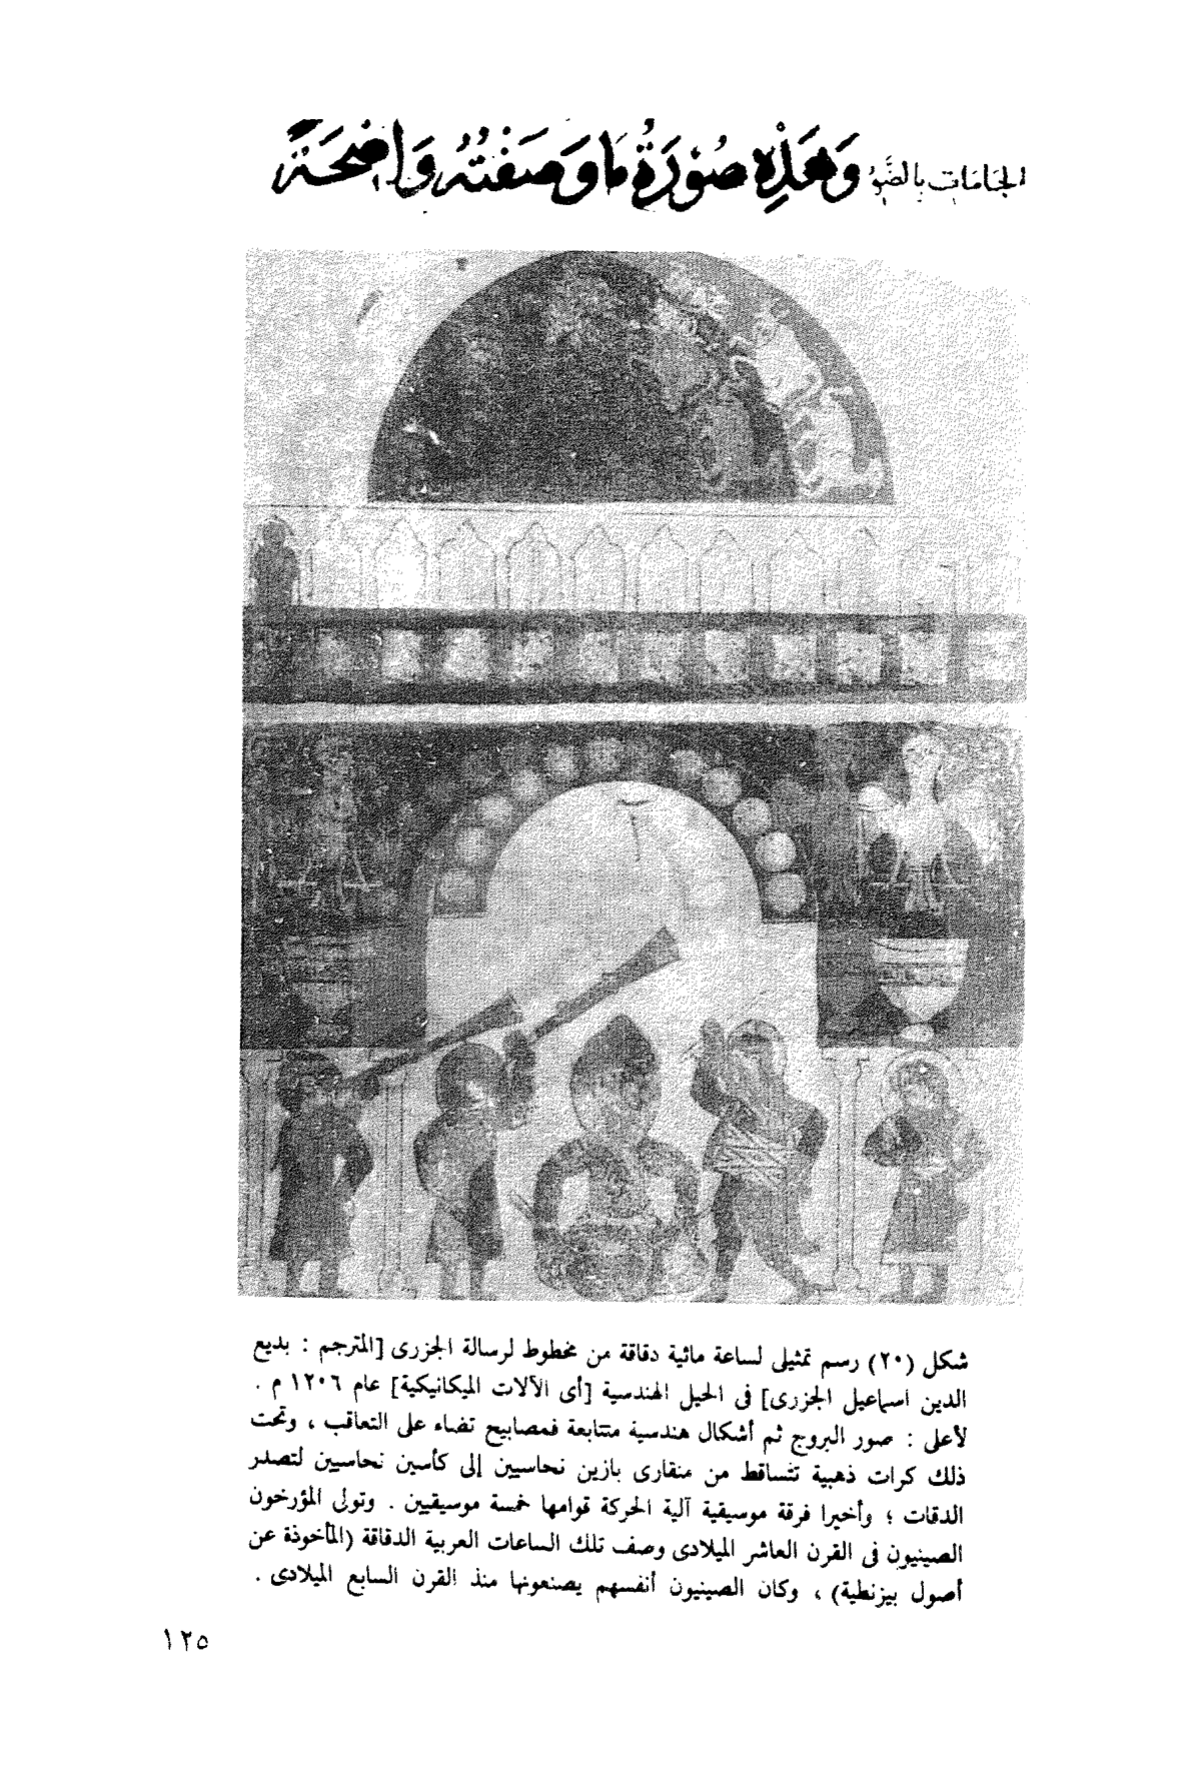 الجَامَات بالضَّوِ وَهَذِهِ صُوْرَةُ مَا وَصَفْتُهُ وَاضِحَةً
شكل (٢٠) رسم تمثيلى لساعة مائية دقاقة من مخطوط لرسالة الجزرى [المترجم : بديع
الدين اسماعيل الجزرى] فى الحيل الهندسية [أى الآلات الميكانيكية] عام ١٢٠٦ م .
لأعلى : صور البروج ثم أشكال هندسية متتابعة فمصابيح تضاء على التعاقب ، وتحت
ذلك كرات ذهبية تتساقط من منقارى بازين نحاسيين إلى كأسين نحاسيين لتصدر
الدقات ؛ وأخيرا فرقة موسيقية آلية الحركة قوامها خمسة موسيقيين . وتولى المؤرخون
الصينيون فى القرن العاشر الميلادى وصف تلك الساعات العربية الدقاقة (المأخوذة عن
أصول بيزنطية) ، وكان الصينيون أنفسهم يصنعونها منذ القرن السابع الميلادى .
١٢٥